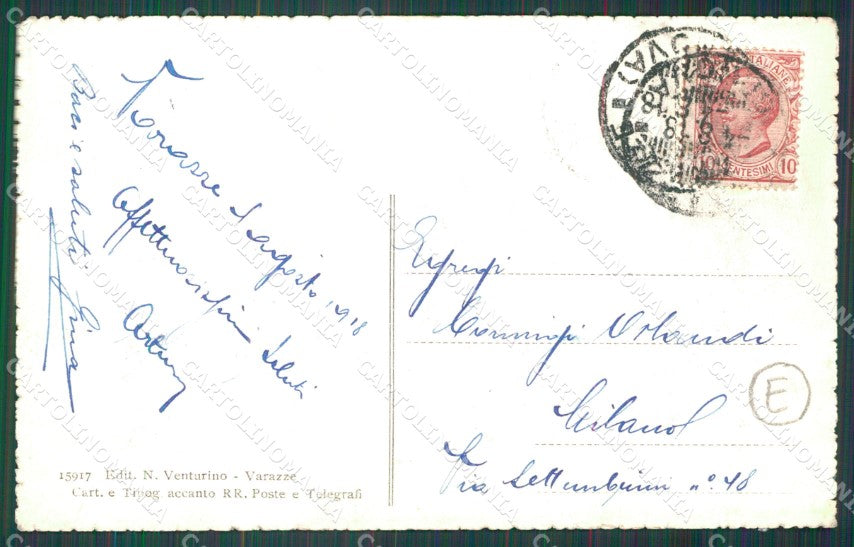 Baci e saluti Gina
Varazze 5 agosto 1918
Affettuosissimi saluti
Arturo
Egregi
Coniugi Orlandi
Milano
Via Settembrini n°. 48
E
10 CENTESIMI 10
15917 Edit. N. Venturino - Varazze
Cart. e Tipog accanto RR. Poste e Telegrafi
CARTOLINOMANIA